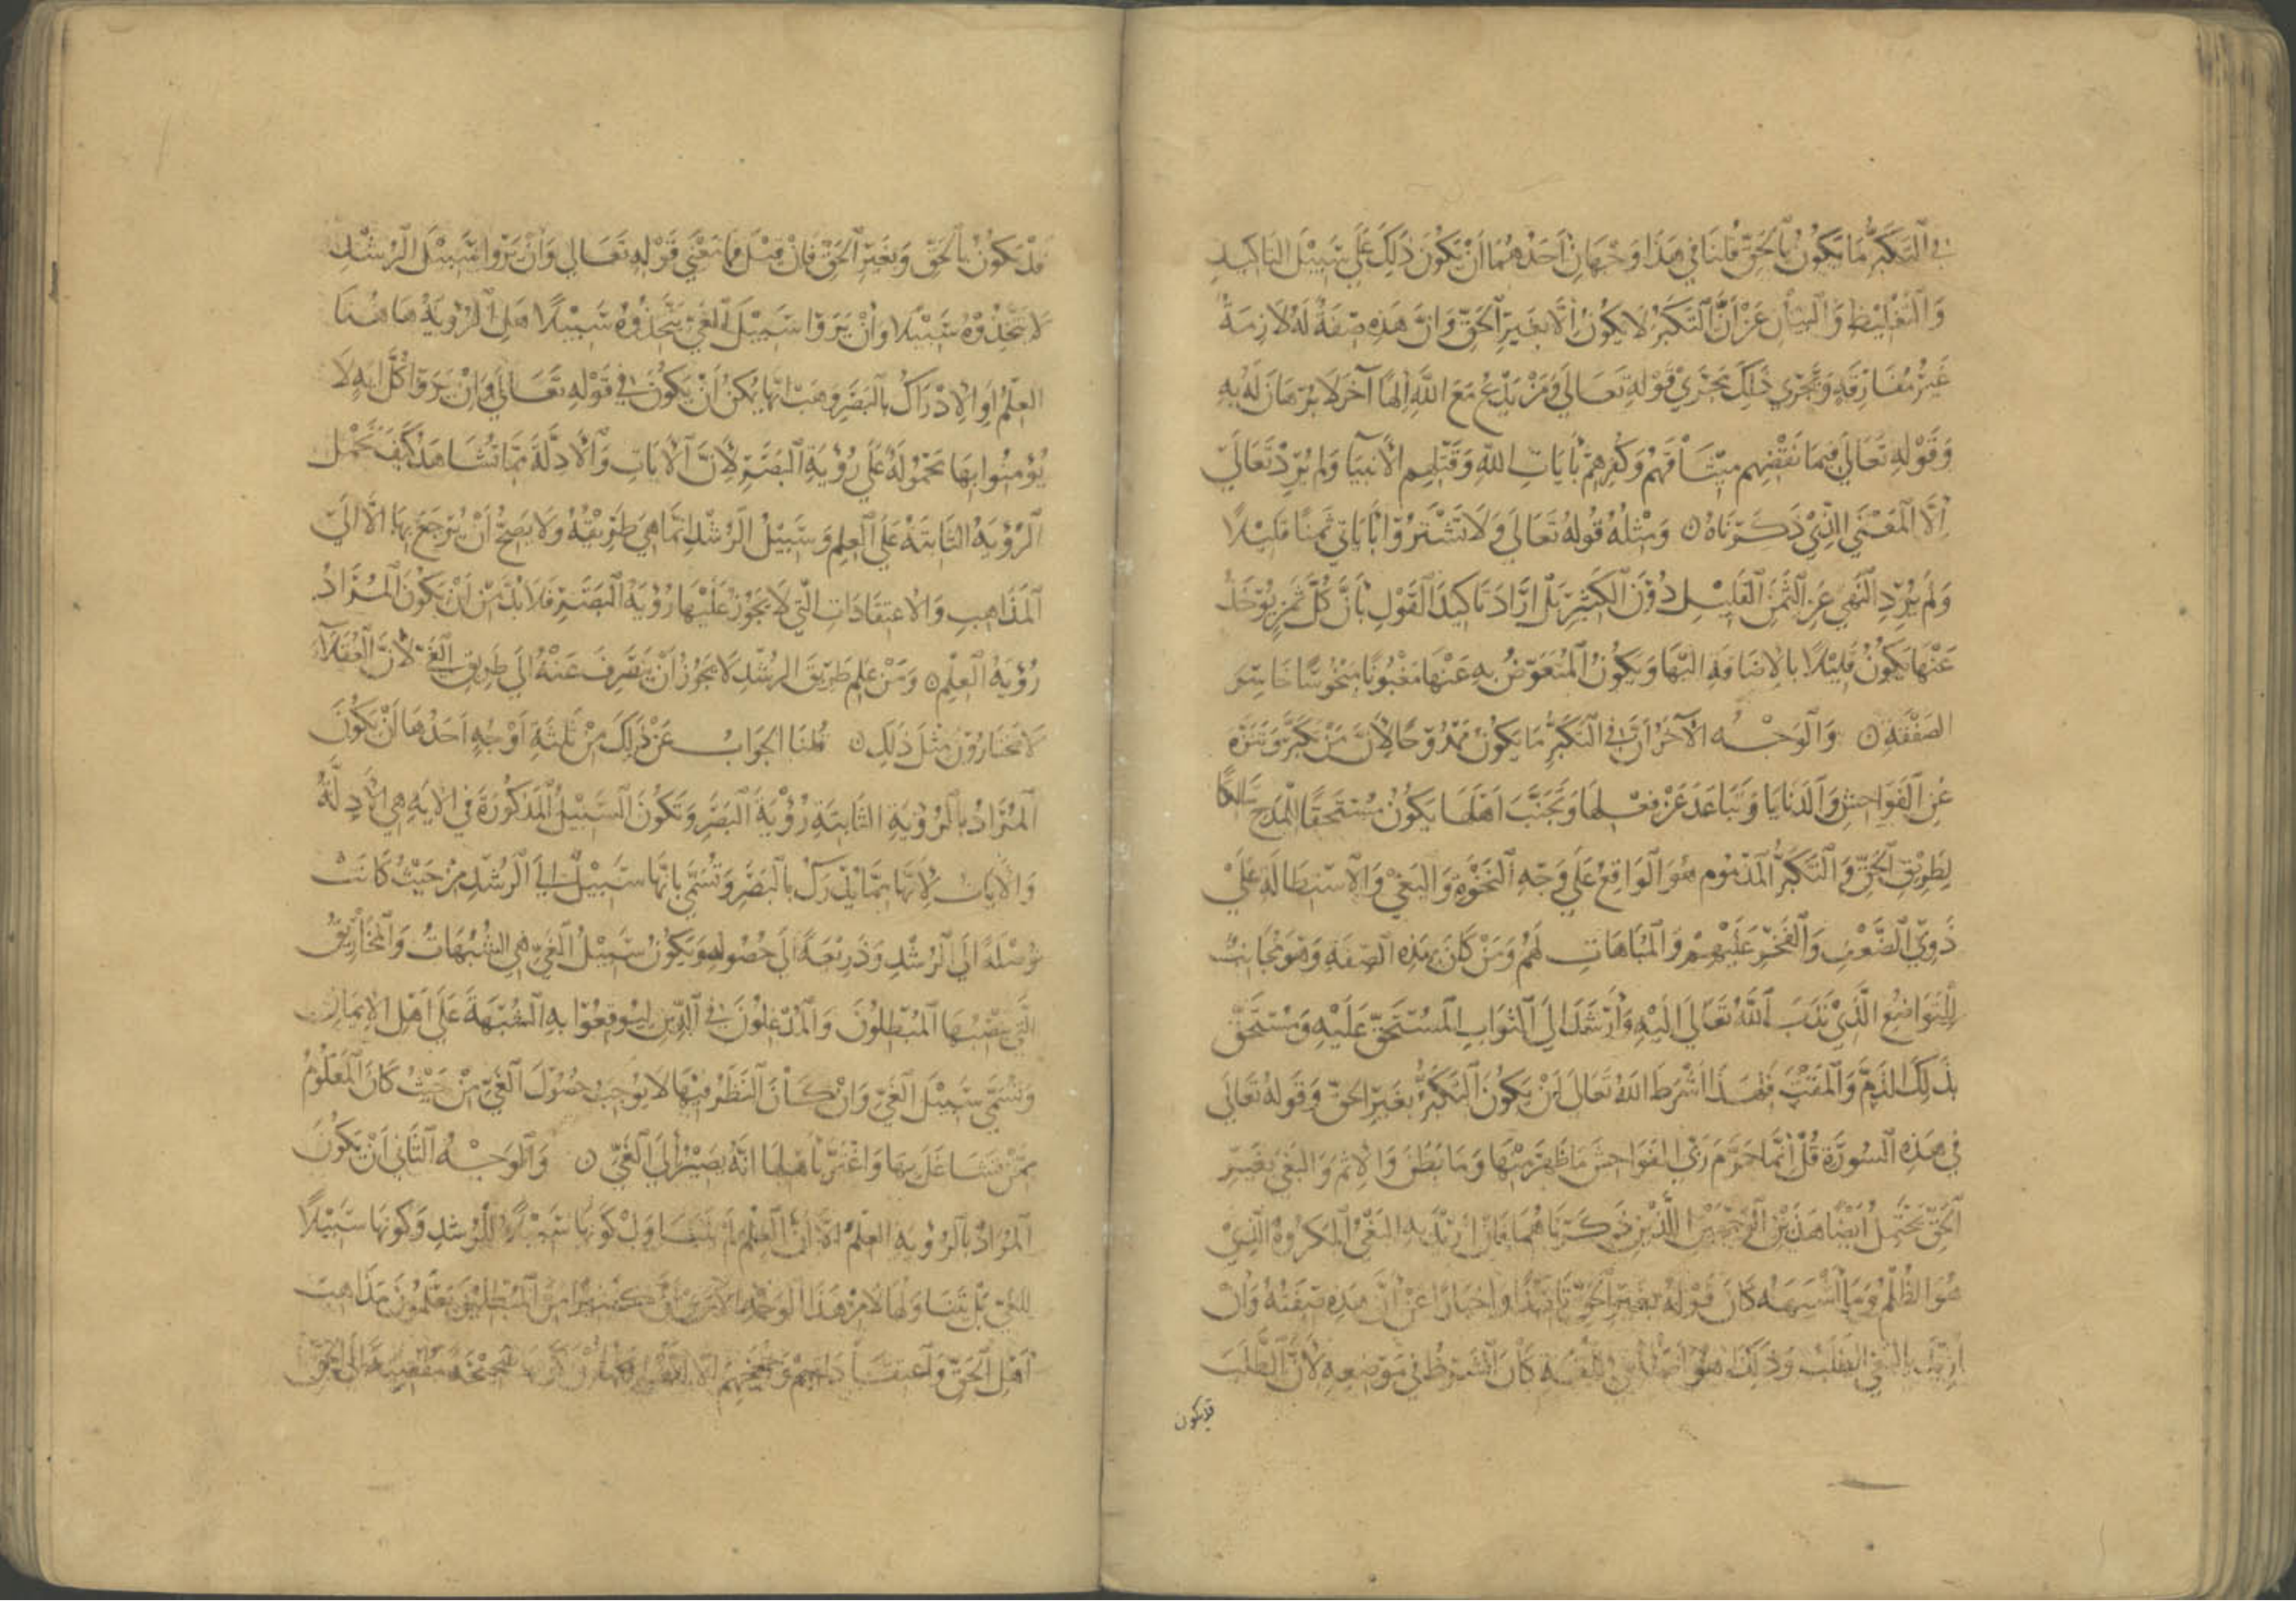 في التَّكَبُّرِ مَا يَكُونُ بِالْحَقِّ قُلْنَا فِي هَذَا وَجْهَانِ أَحَدُهُمَا أَنْ يَكُونَ ذَلِكَ عَلَى سَبِيلِ التَّاكِيدِ
وَالتَّغْلِيظِ وَالْبَيَانِ عَنْ أَنَّ التَّكَبُّرَ لَا يَكُونُ إِلَّا بِغَيْرِ الْحَقِّ وَأَنَّ هَذِهِ صِفَةٌ لَهُ لَازِمَةٌ
غَيْرُ مُفَارِقَةٍ وَيَجْرِي ذَلِكَ مَجْرَى قَوْلِهِ تَعَالَى وَمَنْ يَدْعُ مَعَ اللَّهِ إِلَهًا آخَرَ لَا بُرْهَانَ لَهُ بِهِ
وَقَوْلِهِ تَعَالَى فَبِمَا نَقْضِهِمْ مِيثَاقَهُمْ وَكُفْرِهِمْ بِآيَاتِ اللَّهِ وَقَتْلِهِمُ الْأَنْبِيَا وَلَمْ يُرِدْ تَعَالَى
إِلَّا الْمَعْنَى الَّذِي ذَكَرْنَاهُ ٥ وَمِثْلُهُ قَوْلُهُ تَعَالَى وَلَا تَشْتَرُوا بِآيَاتِي ثَمَنًا قَلِيلًا
وَلَمْ يُرِدِ النَّهْيَ عَنِ الثَّمَنِ الْقَلِيلِ دُونَ الْكَثِيرِ بَلْ أَرَادَ تَاكِيدَ الْقَوْلِ بِأَنَّ كُلَّ ثَمَنٍ يُؤْخَذُ
عَنْهَا يَكُونُ قَلِيلًا بِالْإِضَافَةِ إِلَيْهَا وَيَكُونُ الْمُتَعَوِّضُ بِهِ عَنْهَا مَغْبُونًا مَبْخُوسًا خَاسِرَ
الصَّفْقَةِ ٥ وَالْوَجْهُ الْآخَرُ أَنَّ فِي التَّكَبُّرِ مَا يَكُونُ مَمْدُوحًا لِأَنَّ مَنْ تَكَبَّرَ وَتَنَزَّهَ
عَنِ الْفَوَاحِشِ وَالدَّنَايَا وَتَبَاعَدَ عَنْ فِعْلِهَا وَتَجَنَّبَ أَهْلَهَا يَكُونُ مُسْتَحِقًّا لِلْمَدْحِ سَالِكًا
لِطَرِيقِ الْحَقِّ وَالتَّكَبُّرُ الْمَذْمُومُ هُوَ الْوَاقِعُ عَلَى وَجْهِ النَّخْوَةِ وَالْبَغْيِ وَالِاسْتِطَالَةِ عَلَى
ذَوِي الضَّعْفِ وَالْفَخْرِ عَلَيْهِمْ وَالْمُبَاهَاتِ لَهُمْ وَمَنْ كَانَ بِهَذِهِ الصِّفَةِ وَهُوَ مُجَانِبٌ
لِلتَّوَاضُعِ الَّذِي نَدَبَ اللَّهُ تَعَالَى إِلَيْهِ وَأَرْشَدَ إِلَى الثَّوَابِ الْمُسْتَحَقِّ عَلَيْهِ وَمُسْتَحِقٌّ
بِذَلِكَ الذَّمَّ وَالْمَقْتَ فَلِهَذَا اشْرَطَ اللَّهُ تَعَالَى أَنْ يَكُونَ التَّكَبُّرُ بِغَيْرِ الْحَقِّ وَقَوْلُهُ تَعَالَى
فِي هَذِهِ السُّورَةِ قُلْ إِنَّمَا حَرَّمَ رَبِّيَ الْفَوَاحِشَ مَا ظَهَرَ مِنْهَا وَمَا بَطَنَ وَالْإِثْمَ وَالْبَغْيَ بِغَيْرِ
الْحَقِّ يَحْتَمِلُ أَيْضًا هَذَيْنِ الْوَجْهَيْنِ اللَّذَيْنِ ذَكَرْنَاهُمَا فَإِنْ أُرِيدَ بِهِ الْبَغْيُ الْمَكْرُوهُ الَّذِي
هُوَ الظُّلْمُ وَمَا أَشْبَهَهُ كَانَ قَوْلُهُ بِغَيْرِ الْحَقِّ تَاكِيدًا وَإِخْبَارًا عَنْ أَنَّ هَذِهِ صِفَتُهُ وَإِنْ
أُرِيدَ بِالْبَغْيِ الطَّلَبُ وَذَلِكَ هُوَ أَصْلُهُ فِي اللُّغَةِ كَانَ الشَّرْطُ فِي مَوْضِعِهِ لِأَنَّ الطَّلَبَ
قد يكون
قَدْ يَكُونُ بِالْحَقِّ وَبِغَيْرِ الْحَقِّ فَإِنْ قِيلَ فَمَا مَعْنَى قَوْلِهِ تَعَالَى وَإِنْ يَرَوْا سَبِيلَ الرُّشْدِ
لَا يَتَّخِذُوهُ سَبِيلًا وَإِنْ يَرَوْا سَبِيلَ الْغَيِّ يَتَّخِذُوهُ سَبِيلًا هَلِ الرُّؤْيَةُ هَاهُنَا
الْعِلْمُ أَوِ الْإِدْرَاكُ بِالْبَصَرِ وَهَبْ أَنَّهَا يُمْكِنُ أَنْ يَكُونَ فِي قَوْلِهِ تَعَالَى وَإِنْ يَرَوْا كُلَّ آيَةٍ لَا
يُؤْمِنُوا بِهَا مَحْمُولَةً عَلَى رُؤْيَةِ الْبَصَرِ لِأَنَّ الْآيَاتِ وَالْأَدِلَّةَ مِمَّا تُشَاهَدُ كَيْفَ تُحْمَلُ
الرُّؤْيَةُ الثَّانِيَةُ عَلَى الْعِلْمِ وَسَبِيلُ الرُّشْدِ إِنَّمَا هِيَ طَرِيقُهُ وَلَا يَصِحُّ أَنْ يُرْجَعَ بِهَا إِلَّا إِلَى
الْمَذَاهِبِ وَالِاعْتِقَادَاتِ الَّتِي لَا يَجُوزُ عَلَيْهَا رُؤْيَةُ الْبَصَرِ فَلَا بُدَّ مِنْ أَنْ يَكُونَ الْمُرَادُ
رُؤْيَةَ الْعِلْمِ ٥ وَمَنْ عَلِمَ طَرِيقَ الرُّشْدِ لَا يَجُوزُ أَنْ يَنْصَرِفَ عَنْهُ إِلَى طَرِيقِ الْغَيِّ لِأَنَّ الْعُقَلَاءَ
لَا يَخْتَارُونَ مِثْلَ ذَلِكَ ٥ قُلْنَا الْجَوَابُ عَنْ ذَلِكَ مِنْ ثَلثَةِ أَوْجُهٍ أَحَدُهَا أَنْ يَكُونَ
الْمُرَادُ بِالرُّؤْيَةِ الثَّانِيَةِ رُؤْيَةَ الْبَصَرِ وَتَكُونَ السَّبِيلُ الْمَذْكُورَةُ فِي الْآيَةِ هِيَ الْأَدِلَّةُ
وَالْآيَاتُ لِأَنَّهَا مِمَّا يُدْرَكُ بِالْبَصَرِ وَتُسَمَّى بِأَنَّهَا سَبِيلٌ إِلَى الرُّشْدِ مِنْ حَيْثُ كَانَتْ
وُصْلَةً إِلَى الرُّشْدِ وَذَرِيعَةً إِلَى حُصُولِهِ وَيَكُونُ سَبِيلُ الْغَيِّ هِيَ الشُّبُهَاتُ وَالْمَخَارِيقُ
الَّتِي يَنْصِبُهَا الْمُبْطِلُونَ وَالْمُدْغِلُونَ فِي الدِّينِ لِيُوقِعُوا بِهِ الشُّبْهَةَ عَلَى أَهْلِ الْإِيمَانِ
وَتُسَمَّى سَبِيلَ الْغَيِّ وَإِنْ كَانَ النَّظَرُ فِيهَا لَا يُوجِبُ حُصُولَ الْغَيِّ مِنْ حَيْثُ كَانَ الْمَعْلُومُ
مِمَّنْ تَشَاغَلَ بِهَا وَاغْتَرَّ بِأَهْلِهَا أَنَّهُ يَصِيرُ إِلَى الْغَيِّ ٥ وَالْوَجْهُ الثَّانِي أَنْ يَكُونَ
الْمُرَادُ بِالرُّؤْيَةِ الْعِلْمَ إِلَّا أَنَّ الْعِلْمَ لَمْ يَتَنَاوَلْ كَوْنَهَا سَبِيلًا لِلرُّشْدِ وَكَوْنَهَا سَبِيلًا
لِلْغَيِّ بَلْ تَنَاوَلَهَا لَا مِنْ هَذَا الْوَجْهِ أَلَا تَرَى أَنَّ كَثِيرًا مِنَ الْمُبْطِلِينَ يَعْلَمُونَ مَذَاهِبَ
أَهْلِ الْحَقِّ وَاعْتِقَادَاتِهِمْ وَحُجَجَهُمْ إِلَّا أَنَّهُمْ صَحِيحَةً مُفْضِيَةً إِلَى الْحَقِّ